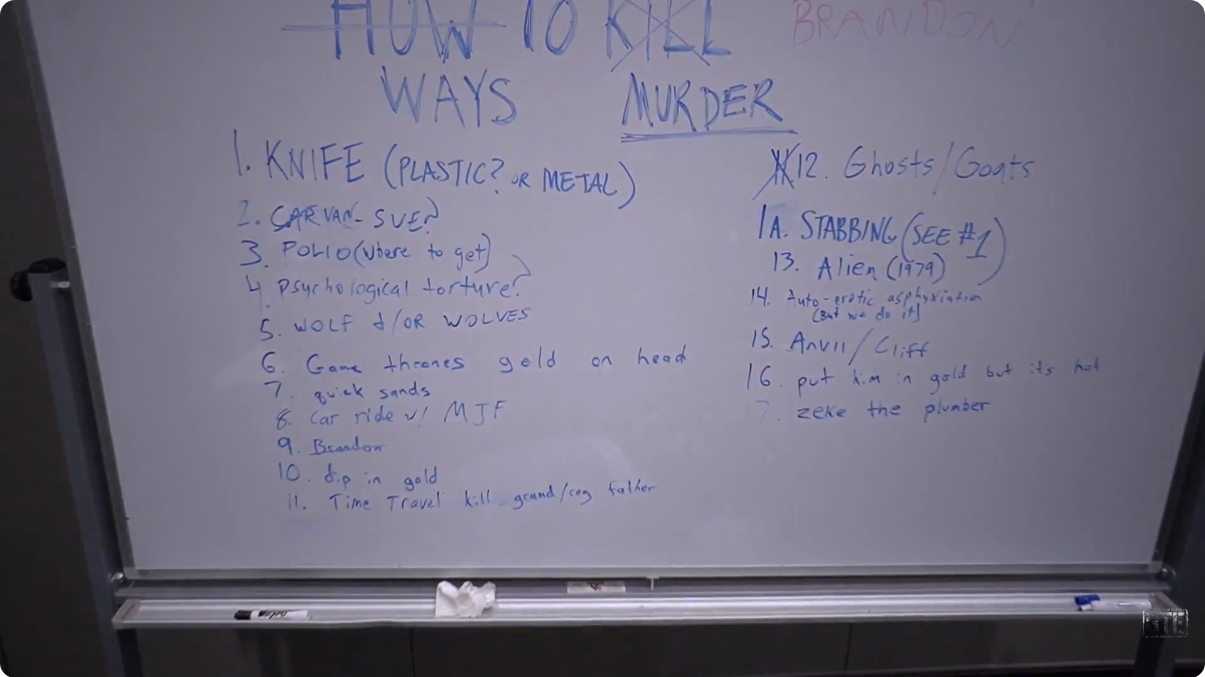 HOW TO KILL
BRANDON
WAYS MURDER
1. KNIFE (PLASTIC? OR METAL)
2. CAR VAN- SUV?
3. POLIO (where to get)
4. Psychological torture?
5. WOLF &/OR WOLVES
6. Game thrones gold on head
7. quick sands
8. Car ride w/ MJF
9. Brandon
10. dip in gold
11. Time Travel kill grand/reg father
12. Ghosts/Goats
1A. STABBING (SEE #1)
13. Alien (1979)
14. Auto-erotic asphyxiation
(But we do it)
15. Anvil/Cliff
16. put him in gold but it's hot
17. zeke the plumber
BTE